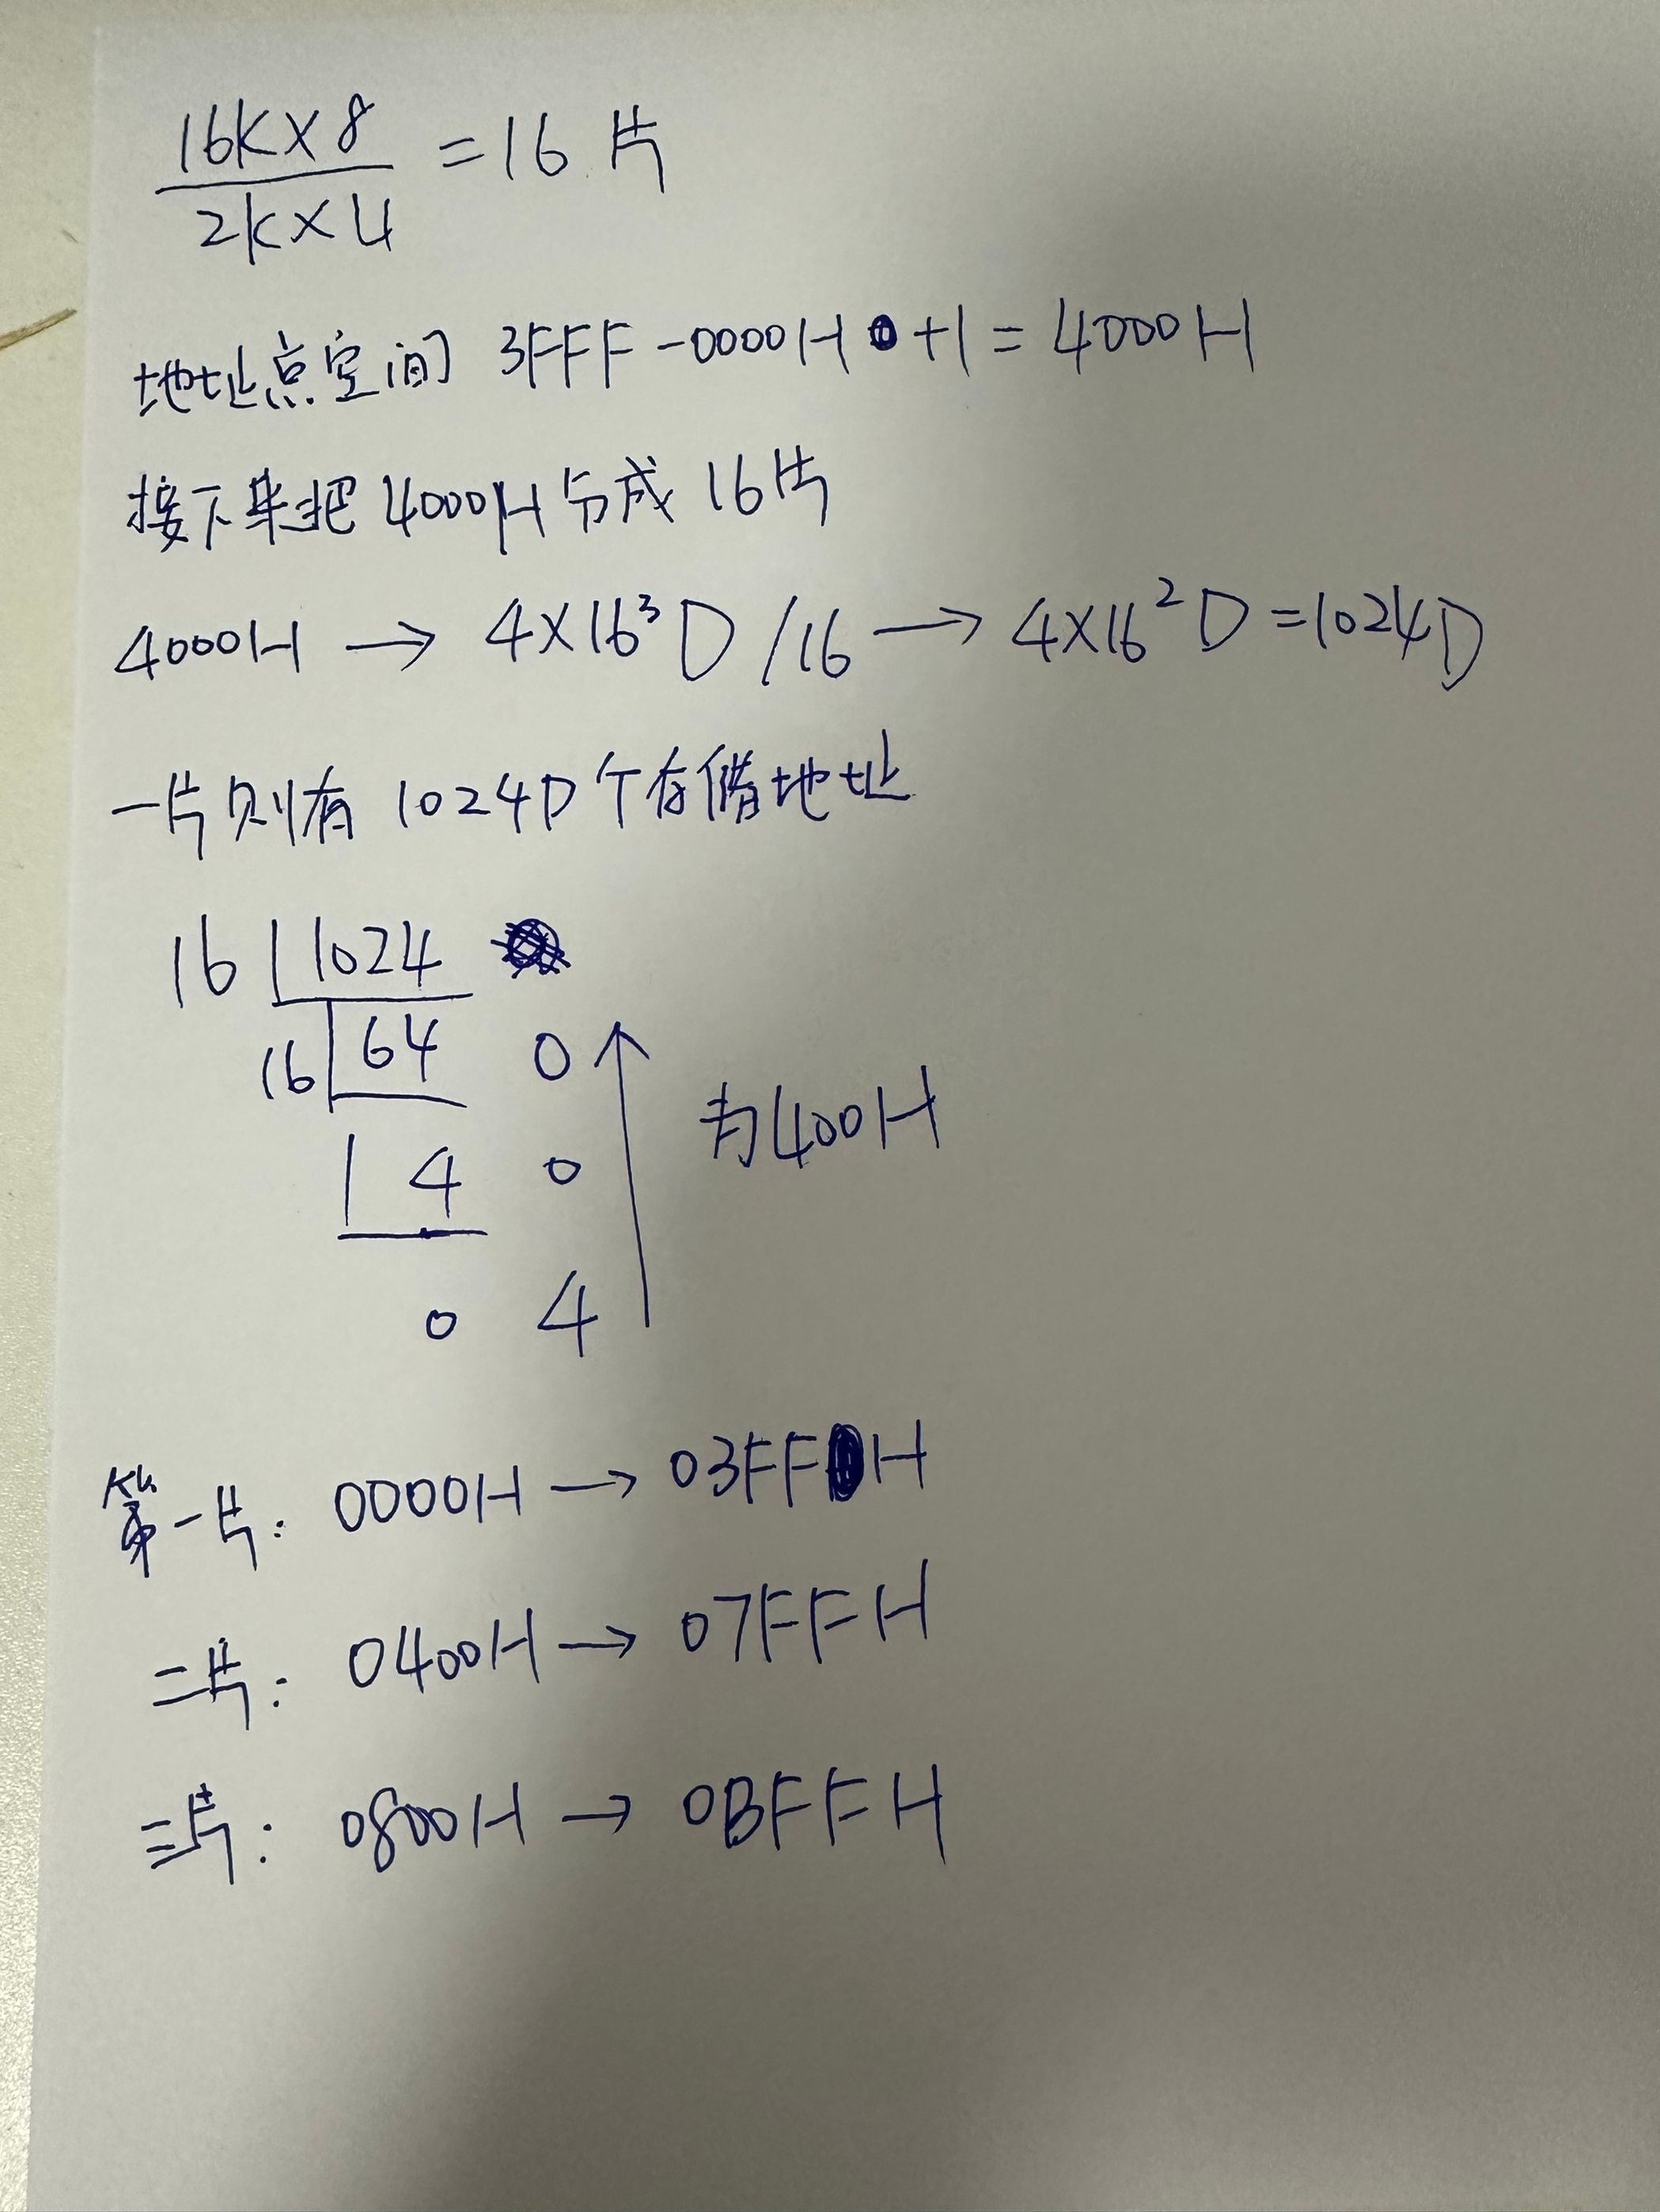 16K×8
2K×4
=16片
地址总空间 3FFF-0000H+1=4000H
接下来把4000H分成16片
4000H → 4×16³D/16 → 4×16²D=1024D
一片则有1024D个存储地址
16 1024
16 64 0
4 0
0 4
为400H
第一片: 0000H → 03FFH
二片: 0400H → 07FFH
三片: 0800H → 0BFFH